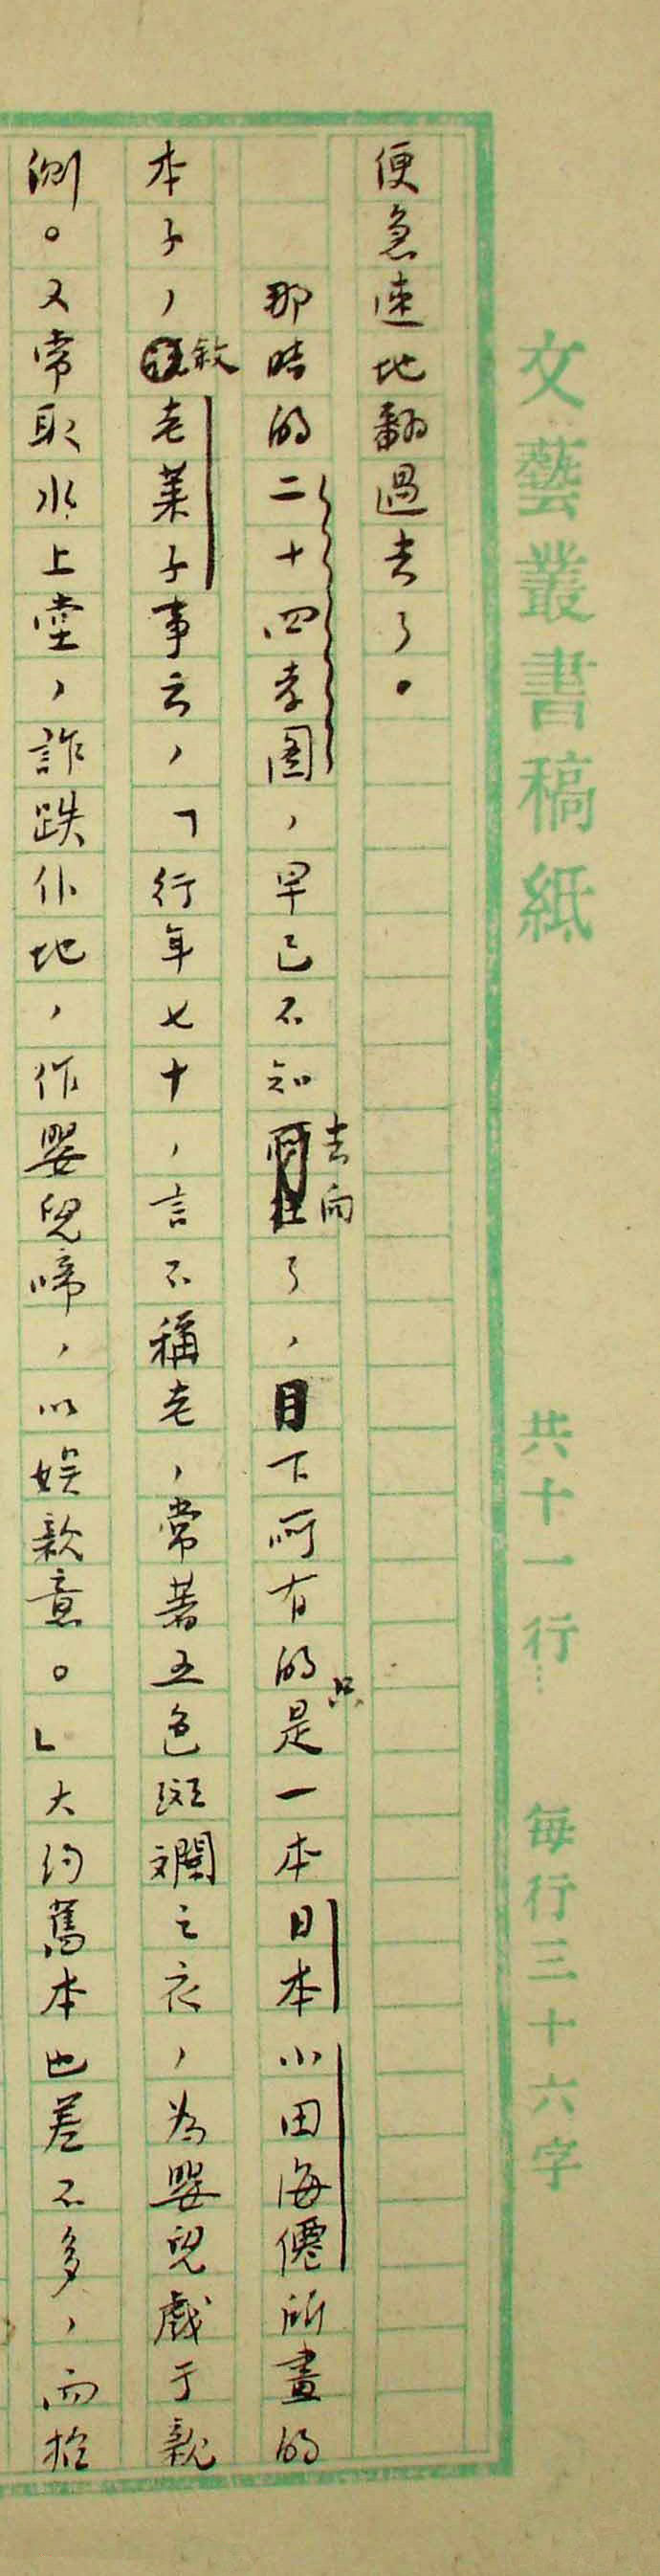 文藝叢書稿紙 共十一行 每行三十六字
便急速地翻過去了。
那時的二十四孝圖，早已不知去向了，目下所有的只是一本日本小田海僊所畫的
本子，敘老萊子事云，「行年七十，言不稱老，常著五色斑斕之衣，為嬰兒戲于親
側。又常取水上堂，詐跌仆地，作嬰兒啼，以娛親意。」大約舊本也差不多，而招